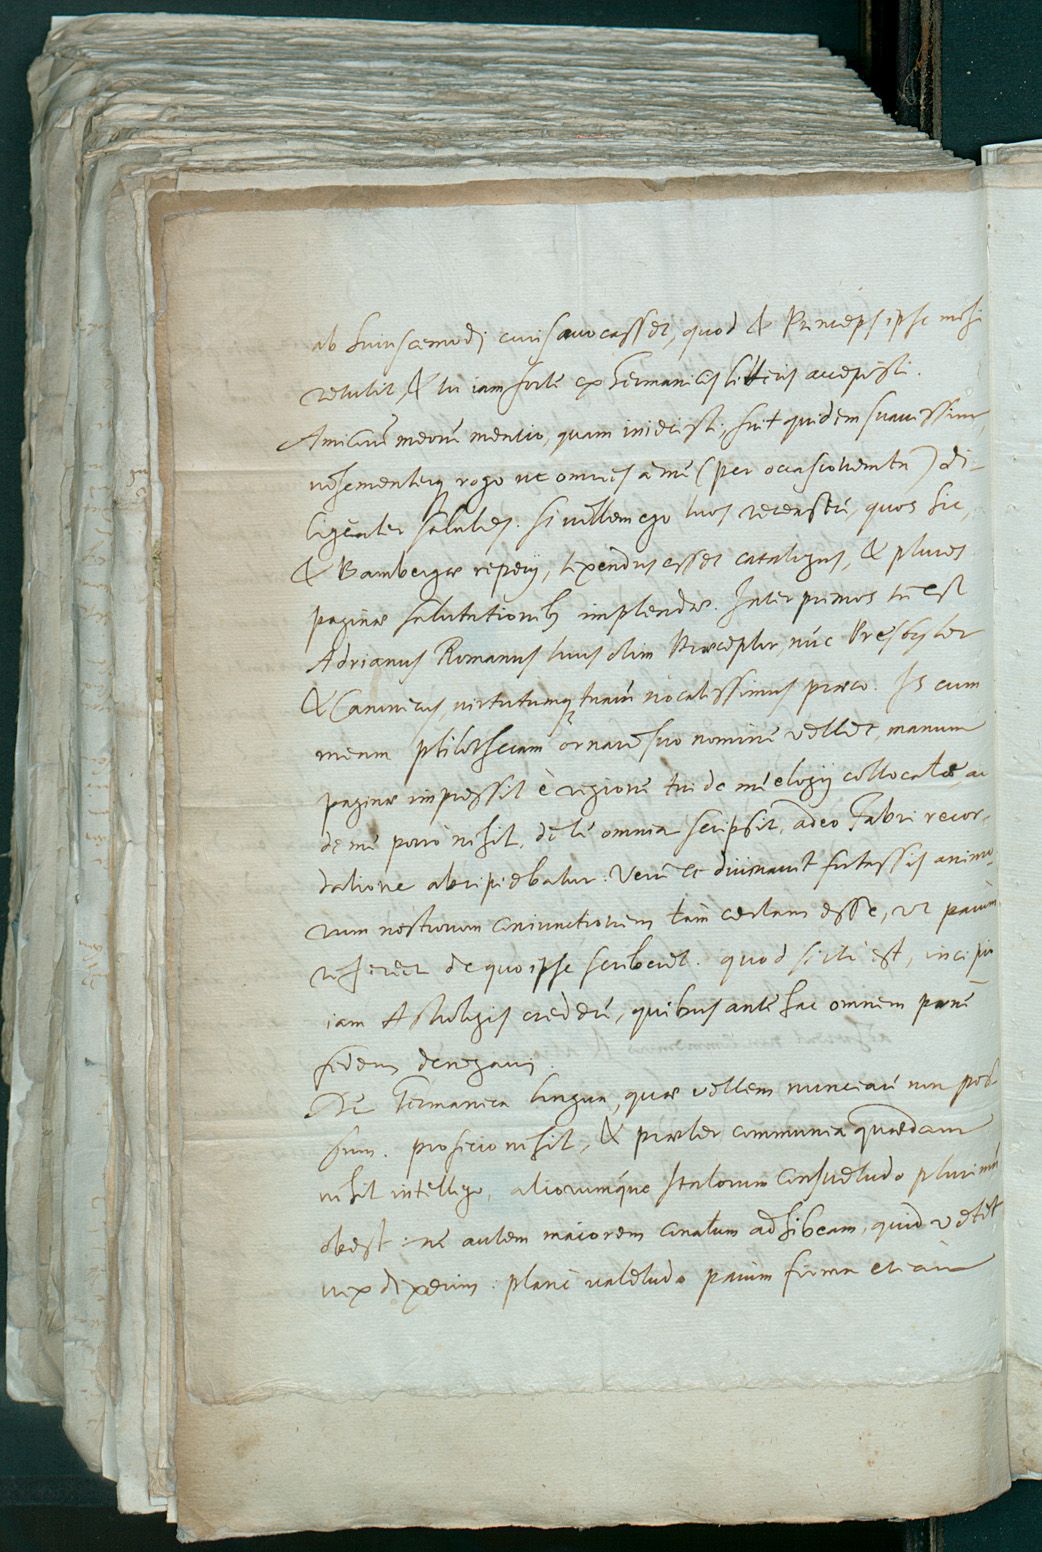 ab huiuscemodi curis auocasset, quod & Princeps ipse mihi
retulit, & tu iam forte ex Germanicis litteris accepisti.
Amicorū meorū mentio, quam iniecisti, fuit quidem suauissima,
uehementerq; rogo ut omnes a me (per occasionem tn̄) di-
ligēter salutes. Si uellem ego tuos recensere, quos hic,
& Bambergæ reperij, texendus esset catalogus, & plures
paginæ salutationib; implendæ. Inter primos tn̄ est
Adrianus Romanus tuus olim Præceptor, nūc Presbyter
& Canonicus, uirtutumq; tuarū uocalissimus præco. Is cum
meam philothecam ornare suo nomine vellet, manum
paginæ impressit è regione tui de me elogij collocatæ, ac
de me porro nihil, de te omnia scripsit, adeo Fabri recor-
datione abripiebatur. Verū et diuinauit fortassis animo-
rum nostrorum coniunctionem tam certam esse, ut parum
referret de quo ipse scriberet. quod si ita est, incipio
iam Astrologis credere, quibus ante hac omnem pene
fidem denegaui.
De Germanica lingua, quæ vellem nunciare non pos-
sum. proficio nihil, & præter communia quædam
nihil intelligo, aliorumque Italorum consuetudo plurimū
obest: ne autem maiorem conatum adhibeam, quid vetet
uix dixerim: plane valetudo parum firma etiam